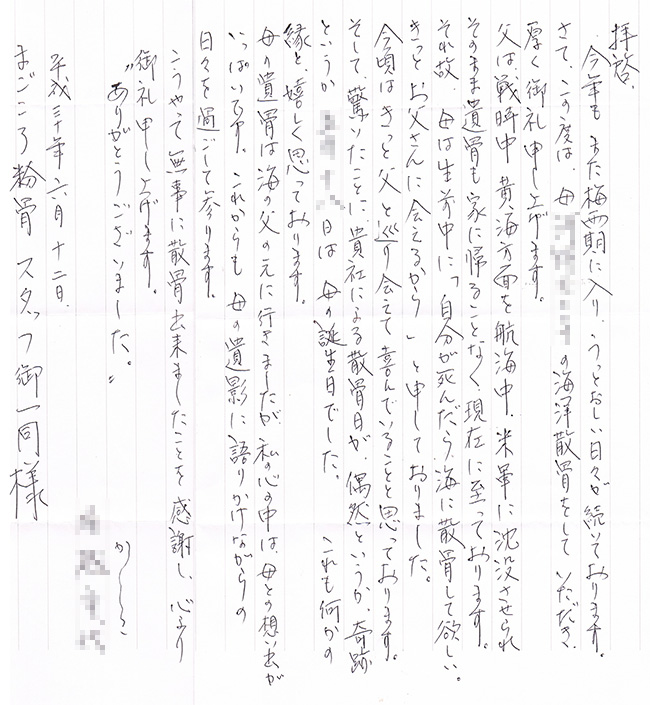 拝啓、
今年も また梅雨期に入り、うっとおしい日々が続いております。
さて、この度は、母 の海洋散骨をして いただき、
厚く御礼申し上げます。
父は、戦時中 黄海方面を航海中、米軍に沈没させられ
そのまま遺骨も家に帰ることなく、現在に至っております。
それ故、母は生前中に「自分が死んだら、海に散骨して欲しい。
きっと お父さんに会えるから」と申しておりました。
今頃は きっと父と巡り会えて喜んでいることと思っております。
そして、驚いたことに、貴社による散骨日が、偶然というか、奇跡
というか 日は 母の誕生日でした。 これも何かの
縁と、嬉しく思っております。
母の遺骨は海の父の元に行きましたが 私の心の中は、母との想い出が
いっぱいです。これからも 母の遺影に語りかけながらの
日々を過ごして参ります。
こうやって無事に散骨出来ましたことを感謝し、心より
御礼申し上げます。
"ありがとうございました。"
かしこ
平成三十年 六月 十二日
まごころ粉骨 スタッフ御一同様